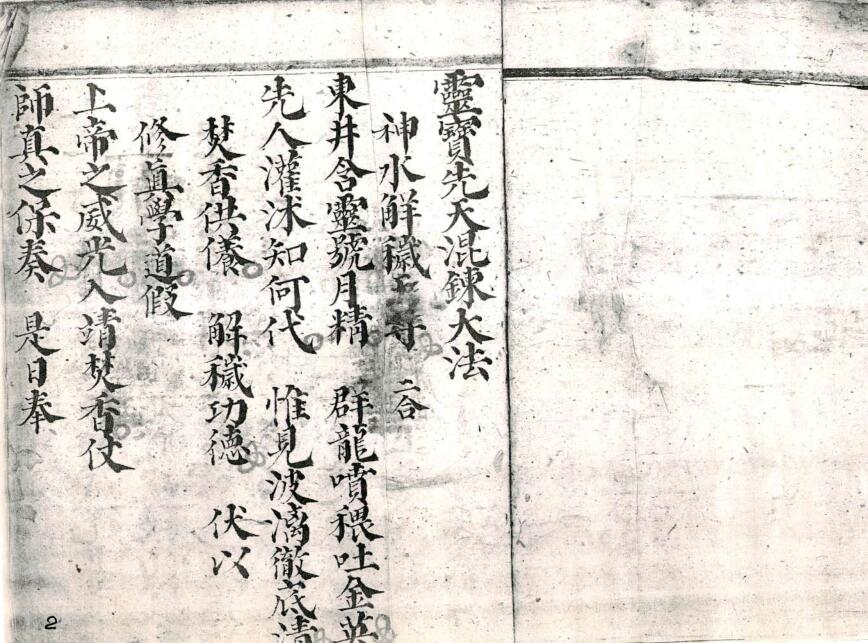 靈寶先天混鍊大法
神水解穢 二合
東井含靈號月精 群龍噴穢吐金英
先人灌沐知何代 惟見波漓徹底清
焚香供養 解穢功德 伏以
修真學道假
上帝之威光入靖焚香仗
師真之保奏 是日奉
2